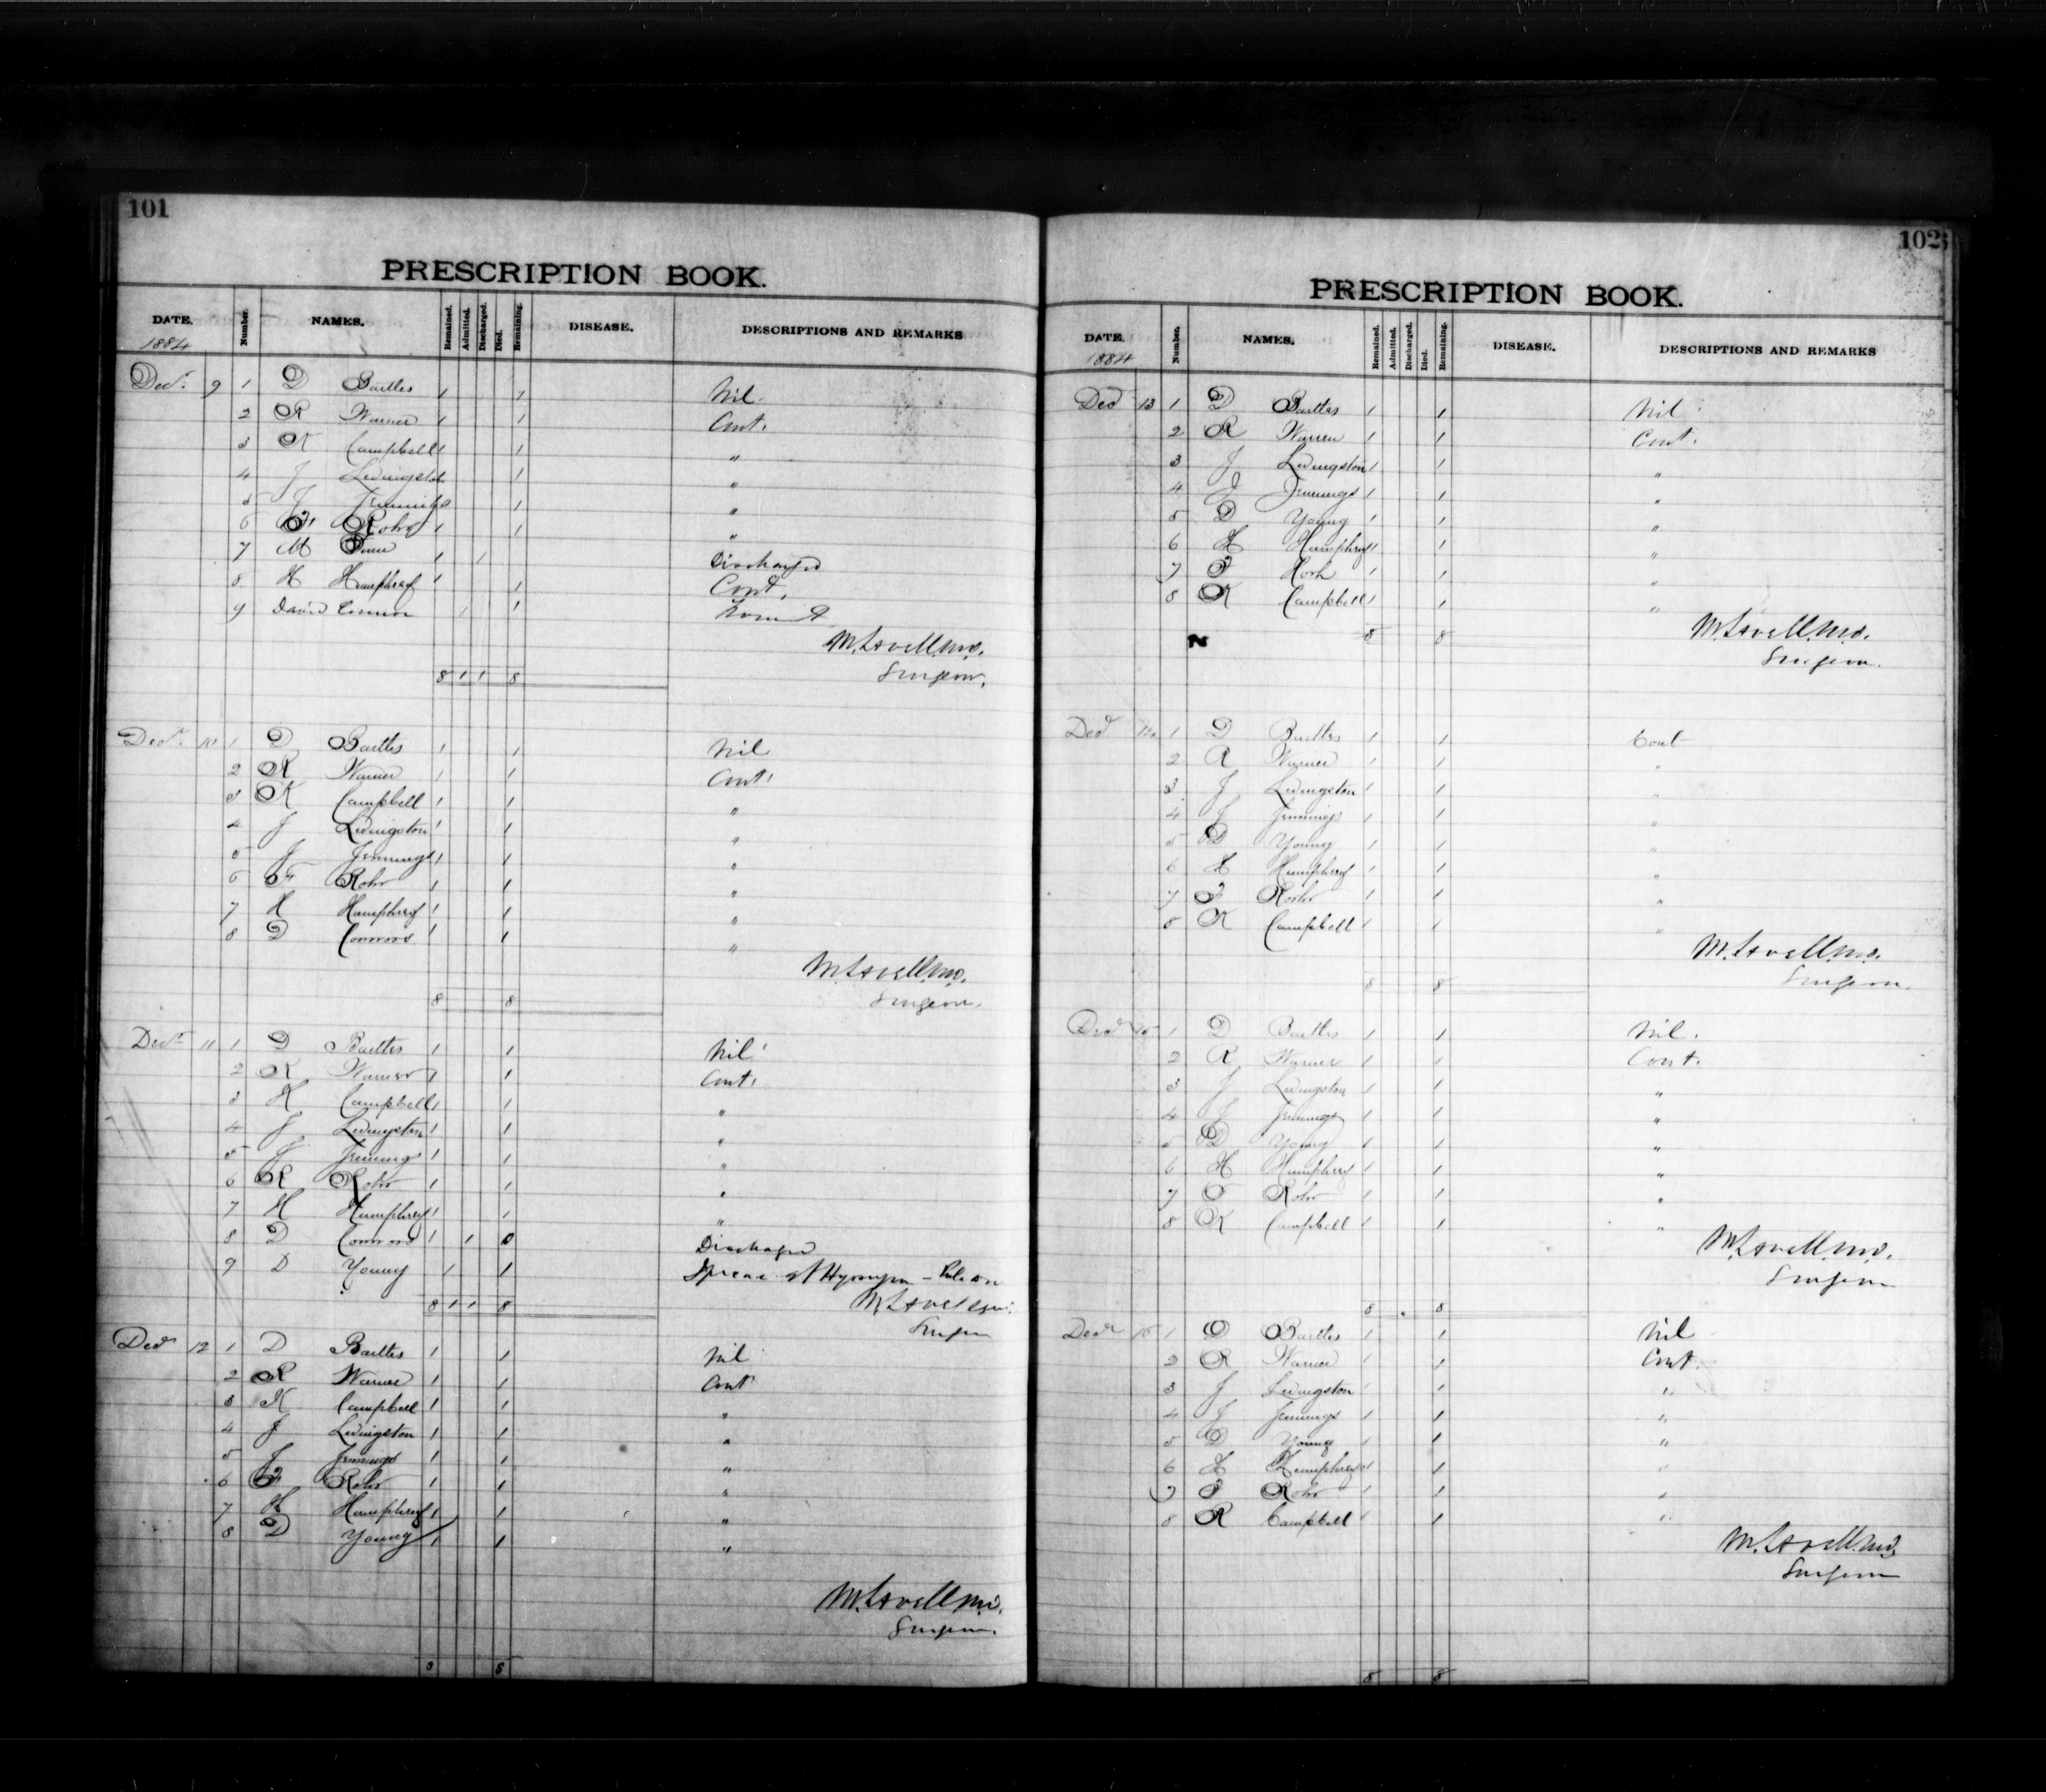 101
PRESCRIPTION BOOK.
DATE. Number. NAMES. Remained. Admitted. Discharged. Died. Remaining. DISEASE. DESCRIPTIONS AND REMARKS
1884
Decr. 9 1 D Baittes 1 1 Nil.
2 R Warner 1 1 Cont.
3 K Campbell 1 1 "
4 J Livingston 1 "
5 J Jennings 1 "
6 F. Rohr 1 1 "
7 M 1 1 Discharged
8 H Humphrey 1 1 Cont.
9 David Connor 1 1
M. Lavell M.D.
Surgeon.
8 1 1 8
Decr. 10 1 D Baittes 1 1 Nil
2 R Warner 1 1 Cont.
3 K Campbell 1 1 "
4 J Livingston 1 1 "
5 J Jennings 1 1 "
6 F Rohr 1 1 "
7 H Humphrey 1 1 "
8 D Connors 1 1 "
M. Lavell M.D.
8 8 Surgeon.
Decr 11 1 D Baittes 1 1 Nil
2 R Warner 1 1 Cont.
3 K Campbell 1 1 "
4 J Livingston 1 1 "
5 J Jennings 1 1 "
6 R Rohr 1 1 "
7 H Humphrey 1 1 "
8 D Connors 1 1 0 Discharged
9 D Young 1 1
8 1 1 8 M. Lavell
Surgeon
Decr 12 1 D Baittes 1 1 Nil
2 R Warner 1 1 Cont
3 K Campbell 1 1 "
4 J Livingston 1 1 "
5 J Jennings 1 1 "
6 F Rohr 1 1 "
7 H Humphrey 1 1 "
8 D Young 1 1 "
M. Lavell M.D.
Surgeon.
8 8
102
PRESCRIPTION BOOK.
DATE. Number. NAMES. Remained. Admitted. Discharged. Died. Remaining. DISEASE. DESCRIPTIONS AND REMARKS
1884
Decr 13 1 D Baittes 1 1 Nil
2 R Warner 1 1 Cont.
3 J Livingston 1 1 "
4 J Jennings 1 1 "
5 D Young 1 1 "
6 H Humphrey 1 1 "
7 F 1 1 "
8 K Campbell 1 1 "
N 8 8 M. Lavell M.D.
Surgeon.
Decr 14 1 D Baittes 1 1 Cont
2 R Warner 1 1 "
3 J Livingston 1 1 "
4 J Jennings 1 1 "
5 D Young 1 1 "
6 H Humphrey 1 1 "
7 F Rohr 1 1 "
8 K Campbell 1 1 "
M. Lavell M.D.
8 8 Surgeon.
Decr 15 1 D Baittes 1 1 Nil.
2 R Warner 1 1 Cont.
3 J Livingston 1 1 "
4 J Jennings 1 1 "
5 D Young 1 1 "
6 H Humphrey 1 1 "
7 F Rohr 1 1 "
8 K Campbell 1 1 "
M. Lavell M.D.
Surgeon
8 8
Decr 1 D Baittes 1 1 Nil
2 R Warner 1 1 Cont.
3 J Livingston 1 1 "
4 J Jennings 1 1 "
5 D Young 1 1 "
6 H Humphrey 1 1 "
7 F Rohr 1 1 "
8 R Campbell 1 1 "
M. Lavell M.D.
Surgeon
8 8